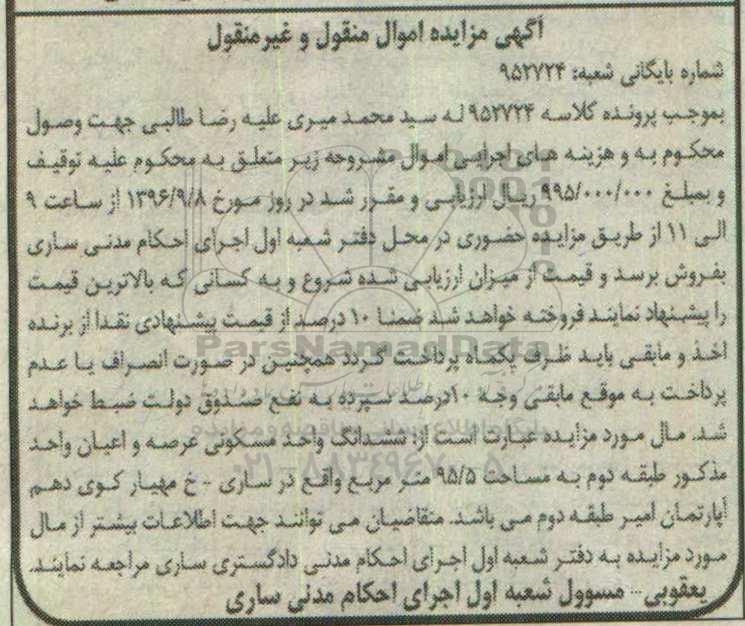 آگهی مزایده اموال منقول و غیرمنقول
شماره بایگانی شعبه: ۹۵۲۷۲۴
بموجب پرونده کلاسه ۹۵۲۷۲۴ له سید محمد میری علیه رضا طالبی جهت وصول
محکوم به و هزینه های اجرایی اموال مشروحه زیر متعلق به محکوم علیه توقیف
و بمبلغ ۹۹۵/۰۰۰/۰۰۰ ریال ارزیابی و مقرر شد در روز مورخ ۱۳۹۶/۹/۸ از ساعت ۹
الی ۱۱ از طریق مزایده حضوری در محل دفتر شعبه اول اجرای احکام مدنی ساری
بفروش برسد و قیمت از میزان ارزیابی شده شروع و به کسانی که بالاترین قیمت
را پیشنهاد نمایند فروخته خواهد شد ضمنا ۱۰ درصد از قیمت پیشنهادی نقدا از برنده
اخذ و مابقی باید ظرف یکماه پرداخت گردد همچنین در صورت انصراف یا عدم
ParsNamadData
پرداخت به موقع مابقی وجه ۱۰درصد سپرده به نفع صندوق دولت ضبط خواهد
شد. مال مورد مزایده عبارت است از: ششدانگ واحد مسکونی عرصه و اعیان واحد
مذکور طبقه دوم به مساحت ۹۵/۵ متر مربع واقع در ساری - خ مهیار کوی دهم
آپارتمان امیر طبقه دوم می باشد. متقاضیان می توانند جهت اطلاعات بیشتر از مال
مورد مزایده به دفتر شعبه اول اجرای احکام مدنی دادگستری ساری مراجعه نمایند.
یعقوبی... مسوول شعبه اول اجرای احکام مدنی ساری